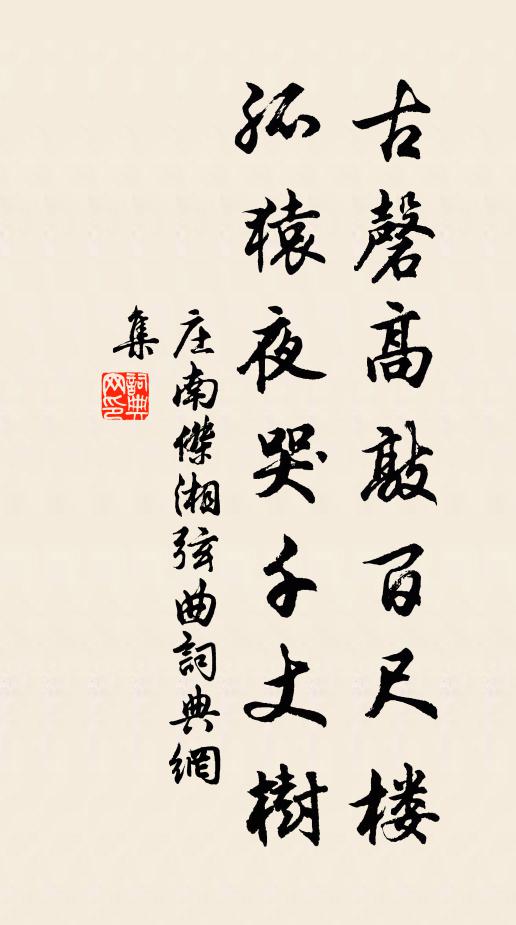 古磬高敲百尺楼
孤猿夜哭千丈樹
庄南傑湘弦曲詞典網
集
詞典
网印